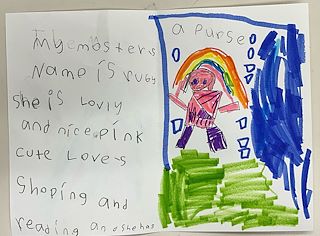 My monsters
Name is ruby
she is lovly
and nice pink
cute Loves
Shoping and
reading and she has
a purse